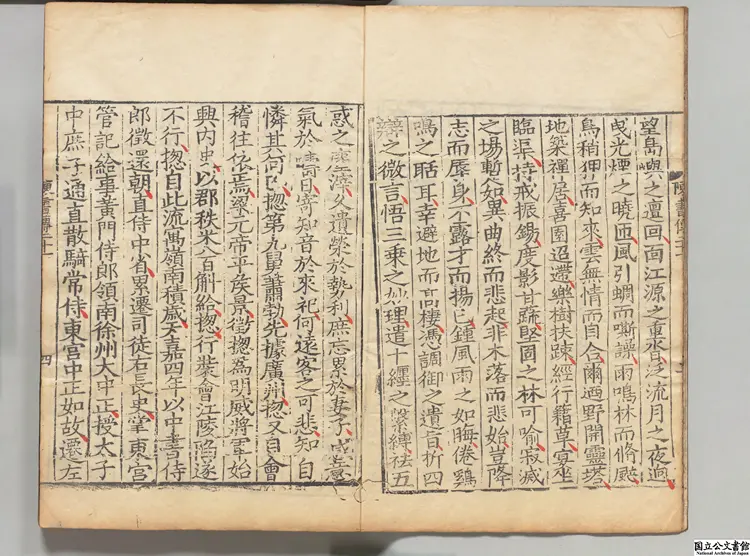 望島嶼之邅回面江源之重沓泛流月之夜迥
曳光煙之曉匝風引蜩而嘶譟雨鳴林而脩颯
鳥稍狎而知來雲無情而自合爾迺野開靈塔
地築禪居喜園迢遰樂樹扶疎經行籍草宴坐
臨渠持戒振錫度影甘蔬堅固之林可喻寂滅
之場暫如異曲終而悲起非木落而悲始豈降
志而辱身不露才而揚己鍾風雨之如晦倦鷄
鳴之聒耳幸避地而高棲憑調御之遺旨析四
辯之微言悟三乘之妙理遣十纏之繫縛袪五
陳書傳二十一
惑之塵滓久遺榮於勢利庶忘累於妻子感意
氣於疇日寄知音於來祀何遠客之可悲知自
憐其何已揔第九舅蕭勃先據廣州揔又自會
稽往依焉梁元帝平侯景徵揔爲明威將軍始
興內史以郡秩米八百斛給揔行裝會江陵陷遂
不行揔自此流寓嶺南積歲天嘉四年以中書侍
郎徵還朝直侍中省累遷司徒右長史掌東宮
管記給事黃門侍郎領南徐州大中正授太子
中庶子通直散騎常侍東宮中正如故遷左
陳書傳二十一
四
国立公文書館
National Archives of Japan